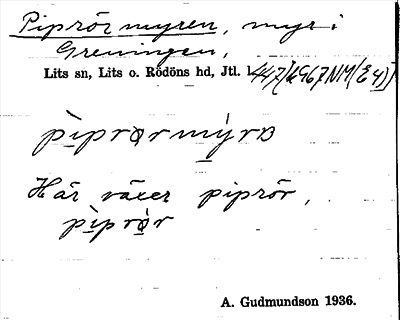 Piprörmyren, myr i
Greningen,
Lits sn, Lits o. Rödöns hd, Jtl. l.
pìprørmýrɒ
Här växer piprör,
pìprør
A. Gudmundson 1936.